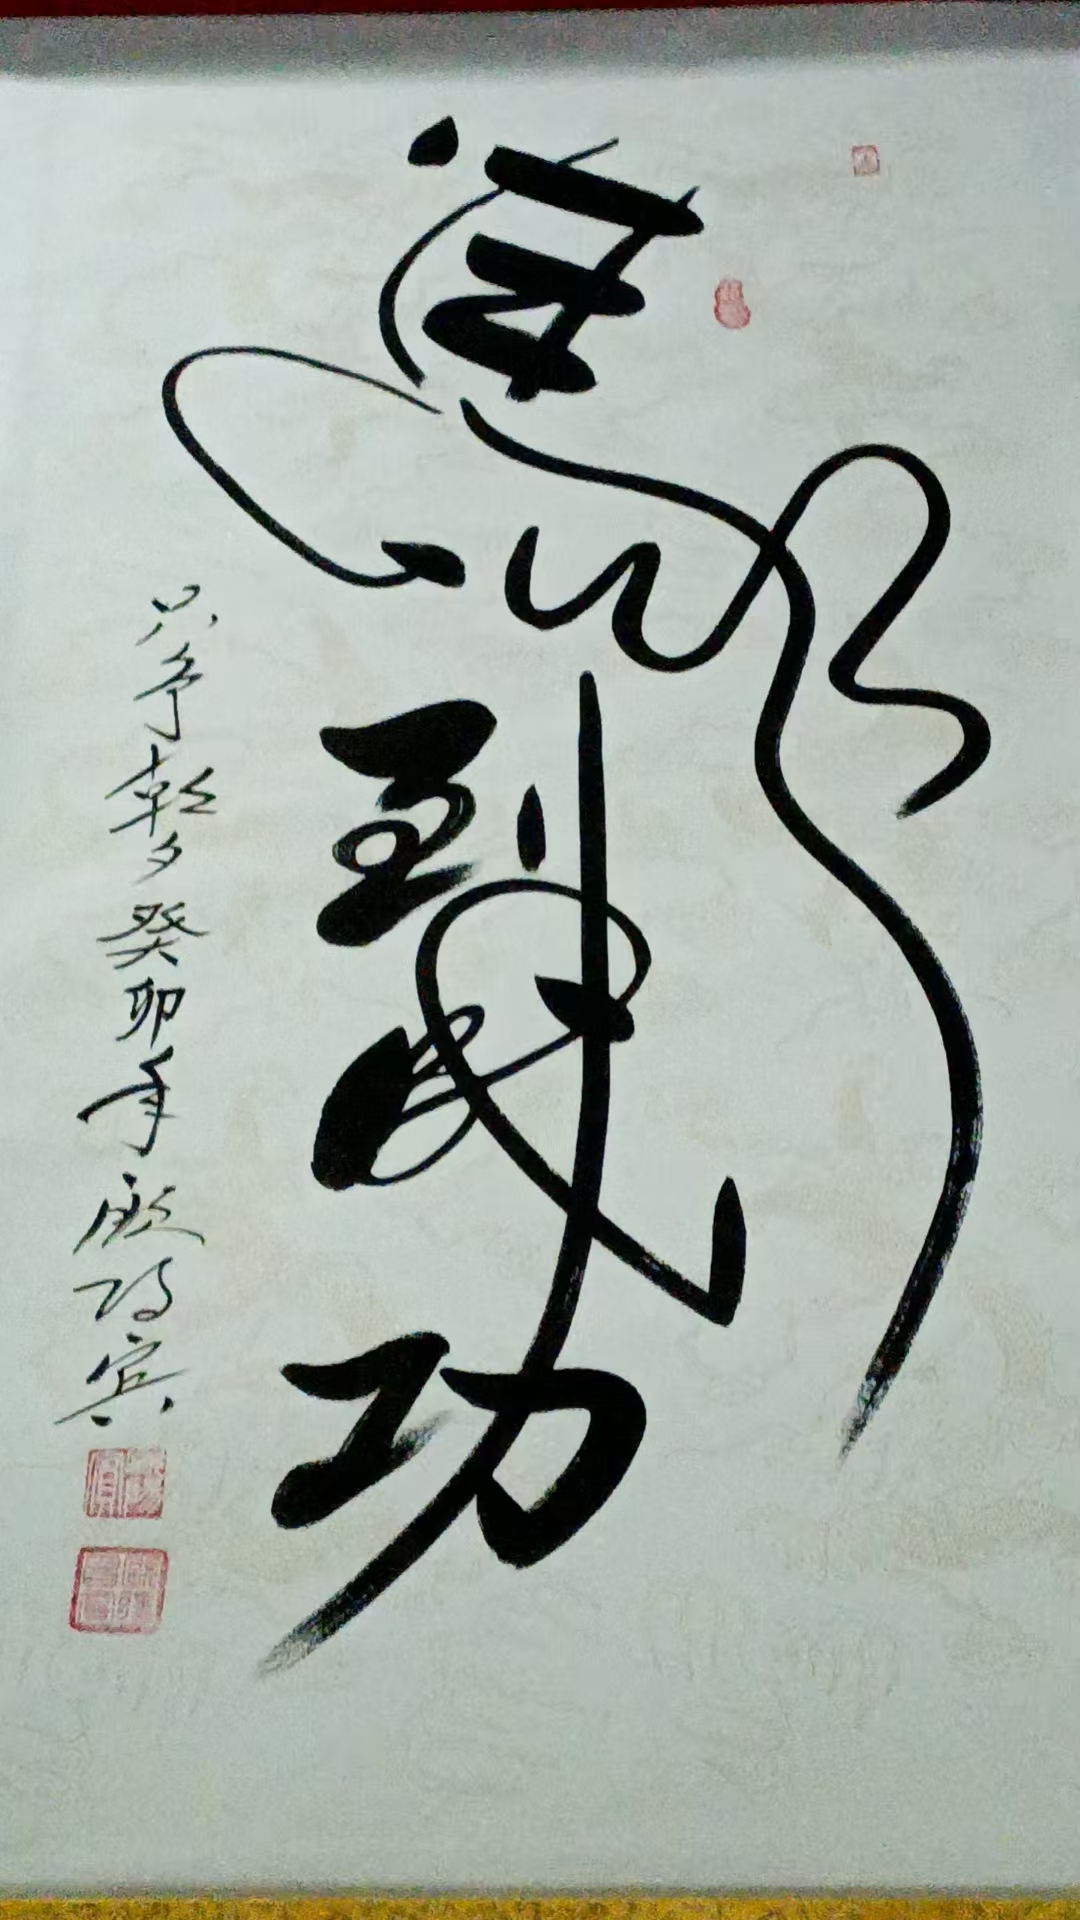 马到成功
只争朝夕 癸卯年 殿阳宾